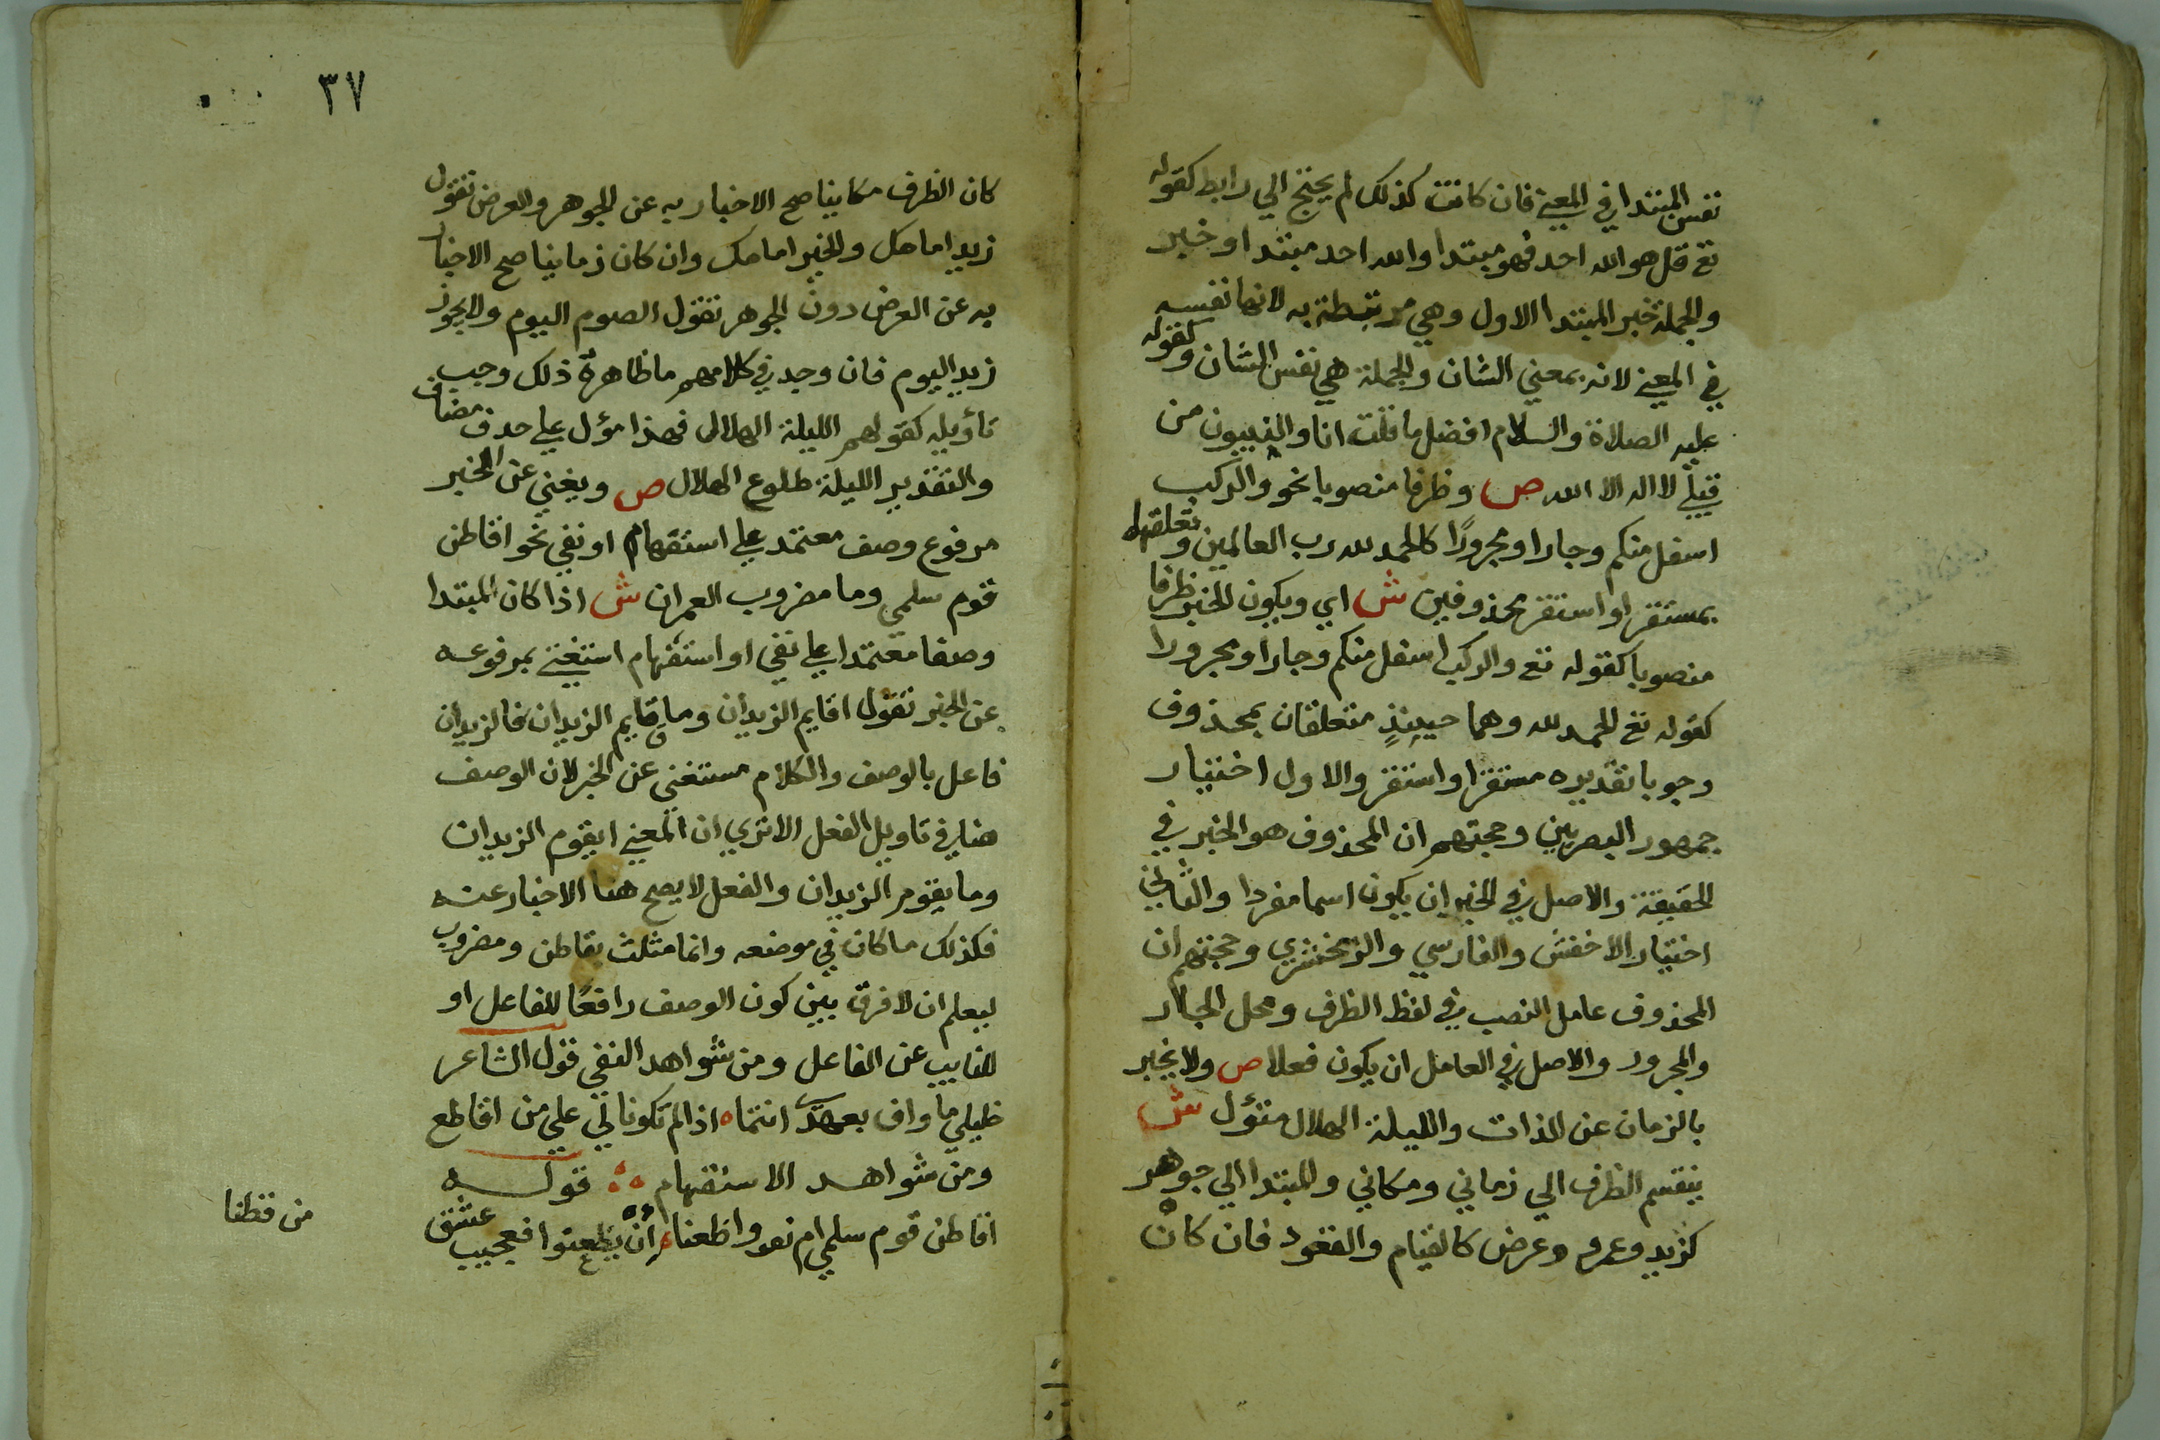 نفس المبتدا في المعني فان كانت كذلك لم يحتج الي رابط كقوله
تع قل هو الله احد فهو مبتدا والله احد مبتدا وخبر
والجملة خبر المبتدا الاول وهي مرتبطة به لانها نفسه
في المعني لانه بمعني الشان والجملة هي نفس الشان وكقوله
عليه الصلاة والسلام افضل ما قلت انا والنبيون من
قبلي لا اله الا الله ص وظرفا منصوبا نحو والركب
اسفل منكم وجارا ومجرورًا كالحمد لله رب العالمين وتعلقهما
بمستقر او استقر محذوفين ش اي ويكون الخبر ظرفا
منصوبا كقوله تع والركب اسفل منكم وجارا ومجرورا
كقوله تع الحمد لله وهما حينيذٍ متعلقان بمحذوف
وجوبا تقديره مستقر او استقر والاول اختيار
جمهور البصريين وحجتهم ان المحذوف هو الخبر في
الحقيقة والاصل في الخبر ان يكون اسما مفردا والثاني
اختيار الاخفش والفارسي والزمخشري وحجتهم ان
المحذوف عامل النصب في لفظ الظرف ومحل الجار
والمجرور والاصل في العامل ان يكون فعلا ص ولا يخبر
بالزمان عن الذات والليلة الهلال متؤل ش
ينقسم الظرف الي زماني ومكاني والمبتدا الي جوهر
كزيد وعمرو وعرض كالقيام والقعود فان كان
٣٧
كان الظرف مكانيا صح الاخبار به عن الجوهر والعرض تقول
زيد امامك والخير امامك وان كان زمانيا صح الاخبار
به عن العرض دون الجوهر تقول الصوم اليوم ولا يجوز
زيد اليوم فان وجد في كلامهم ما ظاهره ذلك وجب
تأويله كقولهم الليلة الهلال فهذا مؤل علي حذف مضاف
والتقدير الليلة طلوع الهلال ص ويغني عن الخبر
مرفوع وصف معتمد علي استفهام او نفي نحو اقاطن
قوم سلمي وما مضروب العمران ش اذا كان المبتدا
وصفا معتمدا علي نفي او استفهام استغني بمرفوعه
عن الخبر تقول اقايم الزيدان وما قايم الزيدان فالزيدان
فاعل بالوصف والكلام مستغني عن الخبر لان الوصف
هنا في تاويل الفعل الا تري ان المعني ايقوم الزيدان
وما يقوم الزيدان والفعل لا يصح هنا الاخبار عنه
فكذلك ما كان في موضعه وانما مثلت بقاطن ومضروب
ليعلم ان لا فرق بين كون الوصف رافعًا للفاعل او
للنايب عن الفاعل ومن شواهد النفي قول الشاعر
خليلي ما واف بعهدي انتماه اذا لم تكونا لي علي من اقاطع
ومن شواهد الاستفهام قوله
اقاطن قوم سلمي ام نووا ظعنا ان يظعنوا فعجيب عيش
من قطنا